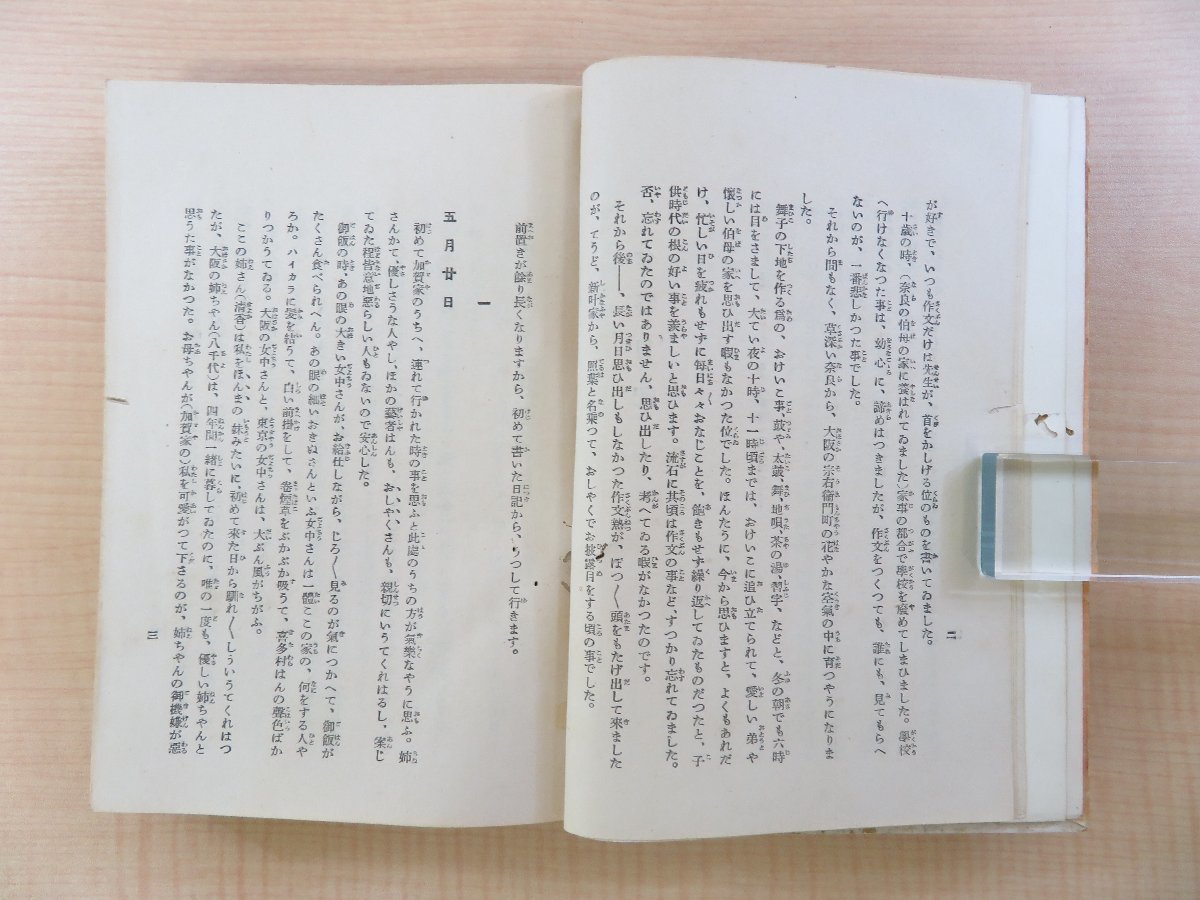 が好きで、いつも作文だけは先生が、首をかしげる位のものを書いてゐました。
十歳の時、(奈良の伯母の家に養はれてゐました)家事の都合で學校を廢めてしまひました。學校
へ行けなくなつた事は、幼心に、諦めはつきましたが、作文をつくつても、誰にも、見てもらへ
ないのが、一番悲しかつた事でした。
それから間もなく、草深い奈良から、大阪の宗右衞門町の花やかな空氣の中に育つやうになりま
した。
舞子の下地を作る爲の、おけいこ事、鼓や太鼓、舞、地唄、茶の湯、習字、などと、冬の朝でも六時
には目をさまして、大てい夜の十時、十一時頃までは、おけいこに追ひ立てられて、愛しい弟や
懷しい伯母の家を思ひ出す暇もなかつた位でした。ほんたうに、今から思ひますと、よくもあれだ
け、忙しい日を疲れもせずに毎日〻々おなじことを、飽きもせず繰り返してゐたものだつたと、子
供時代の根の好い事を羨ましいと思ひます。流石に其頃は作文の事など、すつかり忘れてゐました。
否、忘れてゐたのではありません、思ひ出したり、考へてゐる暇がなかつたのです。
それから後――、長い月日思ひ出しもしなかつた作文熱が、ぽつ〳〵頭をもたげ出して來ました
のが、てうど、新叶家から、照葉と名乘つて、おしやくでお披露目をする頃の事でした。
二
前置きが餘り長くなりますから、初めて書いた日記から、うつして行きます。
一
五月廿日
初めて加賀家のうちへ、連れて行かれた時の事を思ふと此處のうちの方が氣樂なやうに思ふ。姉
さんかて、優しさうな人やし、ほかの藝者はんも、おしやくさんも、親切にいうてくれはるし、案じ
てゐた程皆意地惡らしい人もゐないので安心した。
御飯の時、あの眼の大きい女中さんが、お給仕しながら、じろ〳〵見るのが氣につかへて、御飯が
たくさん食べられへん。あの眼の細いおきぬさんといふ女中さんは一體ここの家の、何をする人や
ろか。ハイカラに髮を結うて、白い前掛をして、卷煙草をぷかぷか吸うて、喜多村はんの聲色ばか
りつかうてゐる。大阪の女中さんと、東京の女中さんは、大ぶん風がちがふ。
ここの姉さん(清香)は私をほんまの妹みたいに、初めて來た日から馴れ〳〵しういうてくれはつ
たが、大阪の姉ちやん(八千代)は、四年間一緒に暮してゐたのに、唯の一度も、優しい姉ちやんと
思うた事がなかつた。お母ちやんが(加賀家の)私を可愛がつて下さるのが、姉ちやんの御機嫌が惡
三